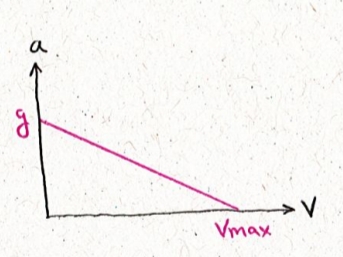 a
g
V
Vmax